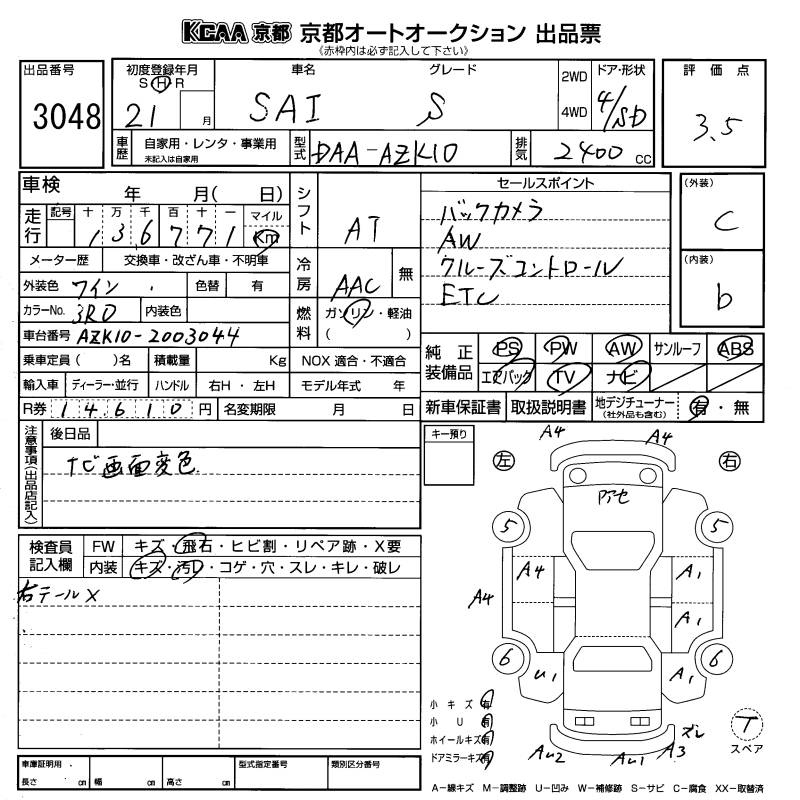 KCAA 京都 京都オートオークション 出品票
《赤枠内は必ず記入して下さい》
出品番号 3048
初度登録年月 S H R 21 月
車名 SAI
グレード S
2WD 4WD
ドア・形状 4/SD
評価点 3.5
車歴 自家用・レンタ・事業用 未記入は自家用
型式 DAA-AZK10
排気 2400 cc
車検 年 月( 日)
シフト AT
セールスポイント
バックカメラ
AW
クルーズコントロール
ETC
(外装) C
(内装) b
走行 記号 十 万 千 百 十 一 マイル Km
1 3 6 7 7 1
メーター歴 交換車・改ざん車・不明車
冷房 AAC 無
外装色 ワイン 色替 有
カラーNo. 3R0 内装色
燃料 ガソリン・軽油 ( )
車台番号 AZK10-2003044
乗車定員 ( )名 積載量 Kg NOX 適合・不適合
輸入車 ディーラー・並行 ハンドル 右H・左H モデル年式 年
R券 14610 円 名変期限 月 日
純正装備品 PS PW AW サンルーフ ABS
エアバッグ TV ナビ
新車保証書 取扱説明書 地デジチューナー (社外品も含む) 有・無
注意事項(出品店記入) 後日品
ナビ画面変色
キー預り
左 右
A4 A4
Pアセ
5 5
A4 A4 A1
A1
6 U1 A1 6
AU2 AU1 A3 ズレ
検査員記入欄 FW キズ・飛石・ヒビ割・リペア跡・X要
内装 キズ・汚レ・コゲ・穴・スレ・キレ・破レ
右テールX
小キズ 有
小U 有
ホイールキズ 有
ドアミラーキズ 有
T スペア
車庫証明用 長さ cm 幅 cm 高さ cm 型式指定番号 類別区分番号
A-線キズ M-調整跡 U-凹み W-補修跡 S-サビ C-腐食 XX-取替済